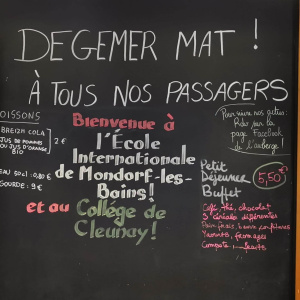 DEGEMER MAT !
À TOUS NOS PASSAGERS
BOISSONS
BREIZH COLA
JUS DE POMMES
OU JUS D'ORANGE
BIO
2 €
EAU 50cl : 0,80 €
GOURDE : 9 €
Bienvenue à
l'École
Internationale
de Mondorf-les-
Bains !
et au Collège de
Cleunay !
Pour suivre nos actus :
RdV sur la
page Facebook
de l'auberge !
Petit
Déjeuner
Buffet
5,50 €
Café, thé, chocolat
3 céréales différentes
Pain frais, beurre, confitures
Yaourts, fromages
Compote, fruits